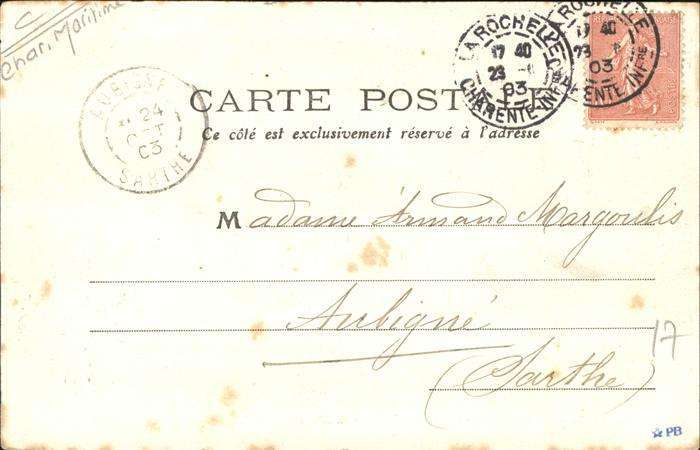 Char. Maritime
LA ROCHELLE
17 40
23
03
CHARENTE INFRE
LA ROCHELLE
17 40
23
03
CHARENTE INFRE
AUBIGNE
24
OCT
03
SARTHE
CARTE POSTALE
Ce côté est exclusivement réservé à l'adresse
Madame Armand Margoulis
Aubigné
(Sarthe)
17
PB